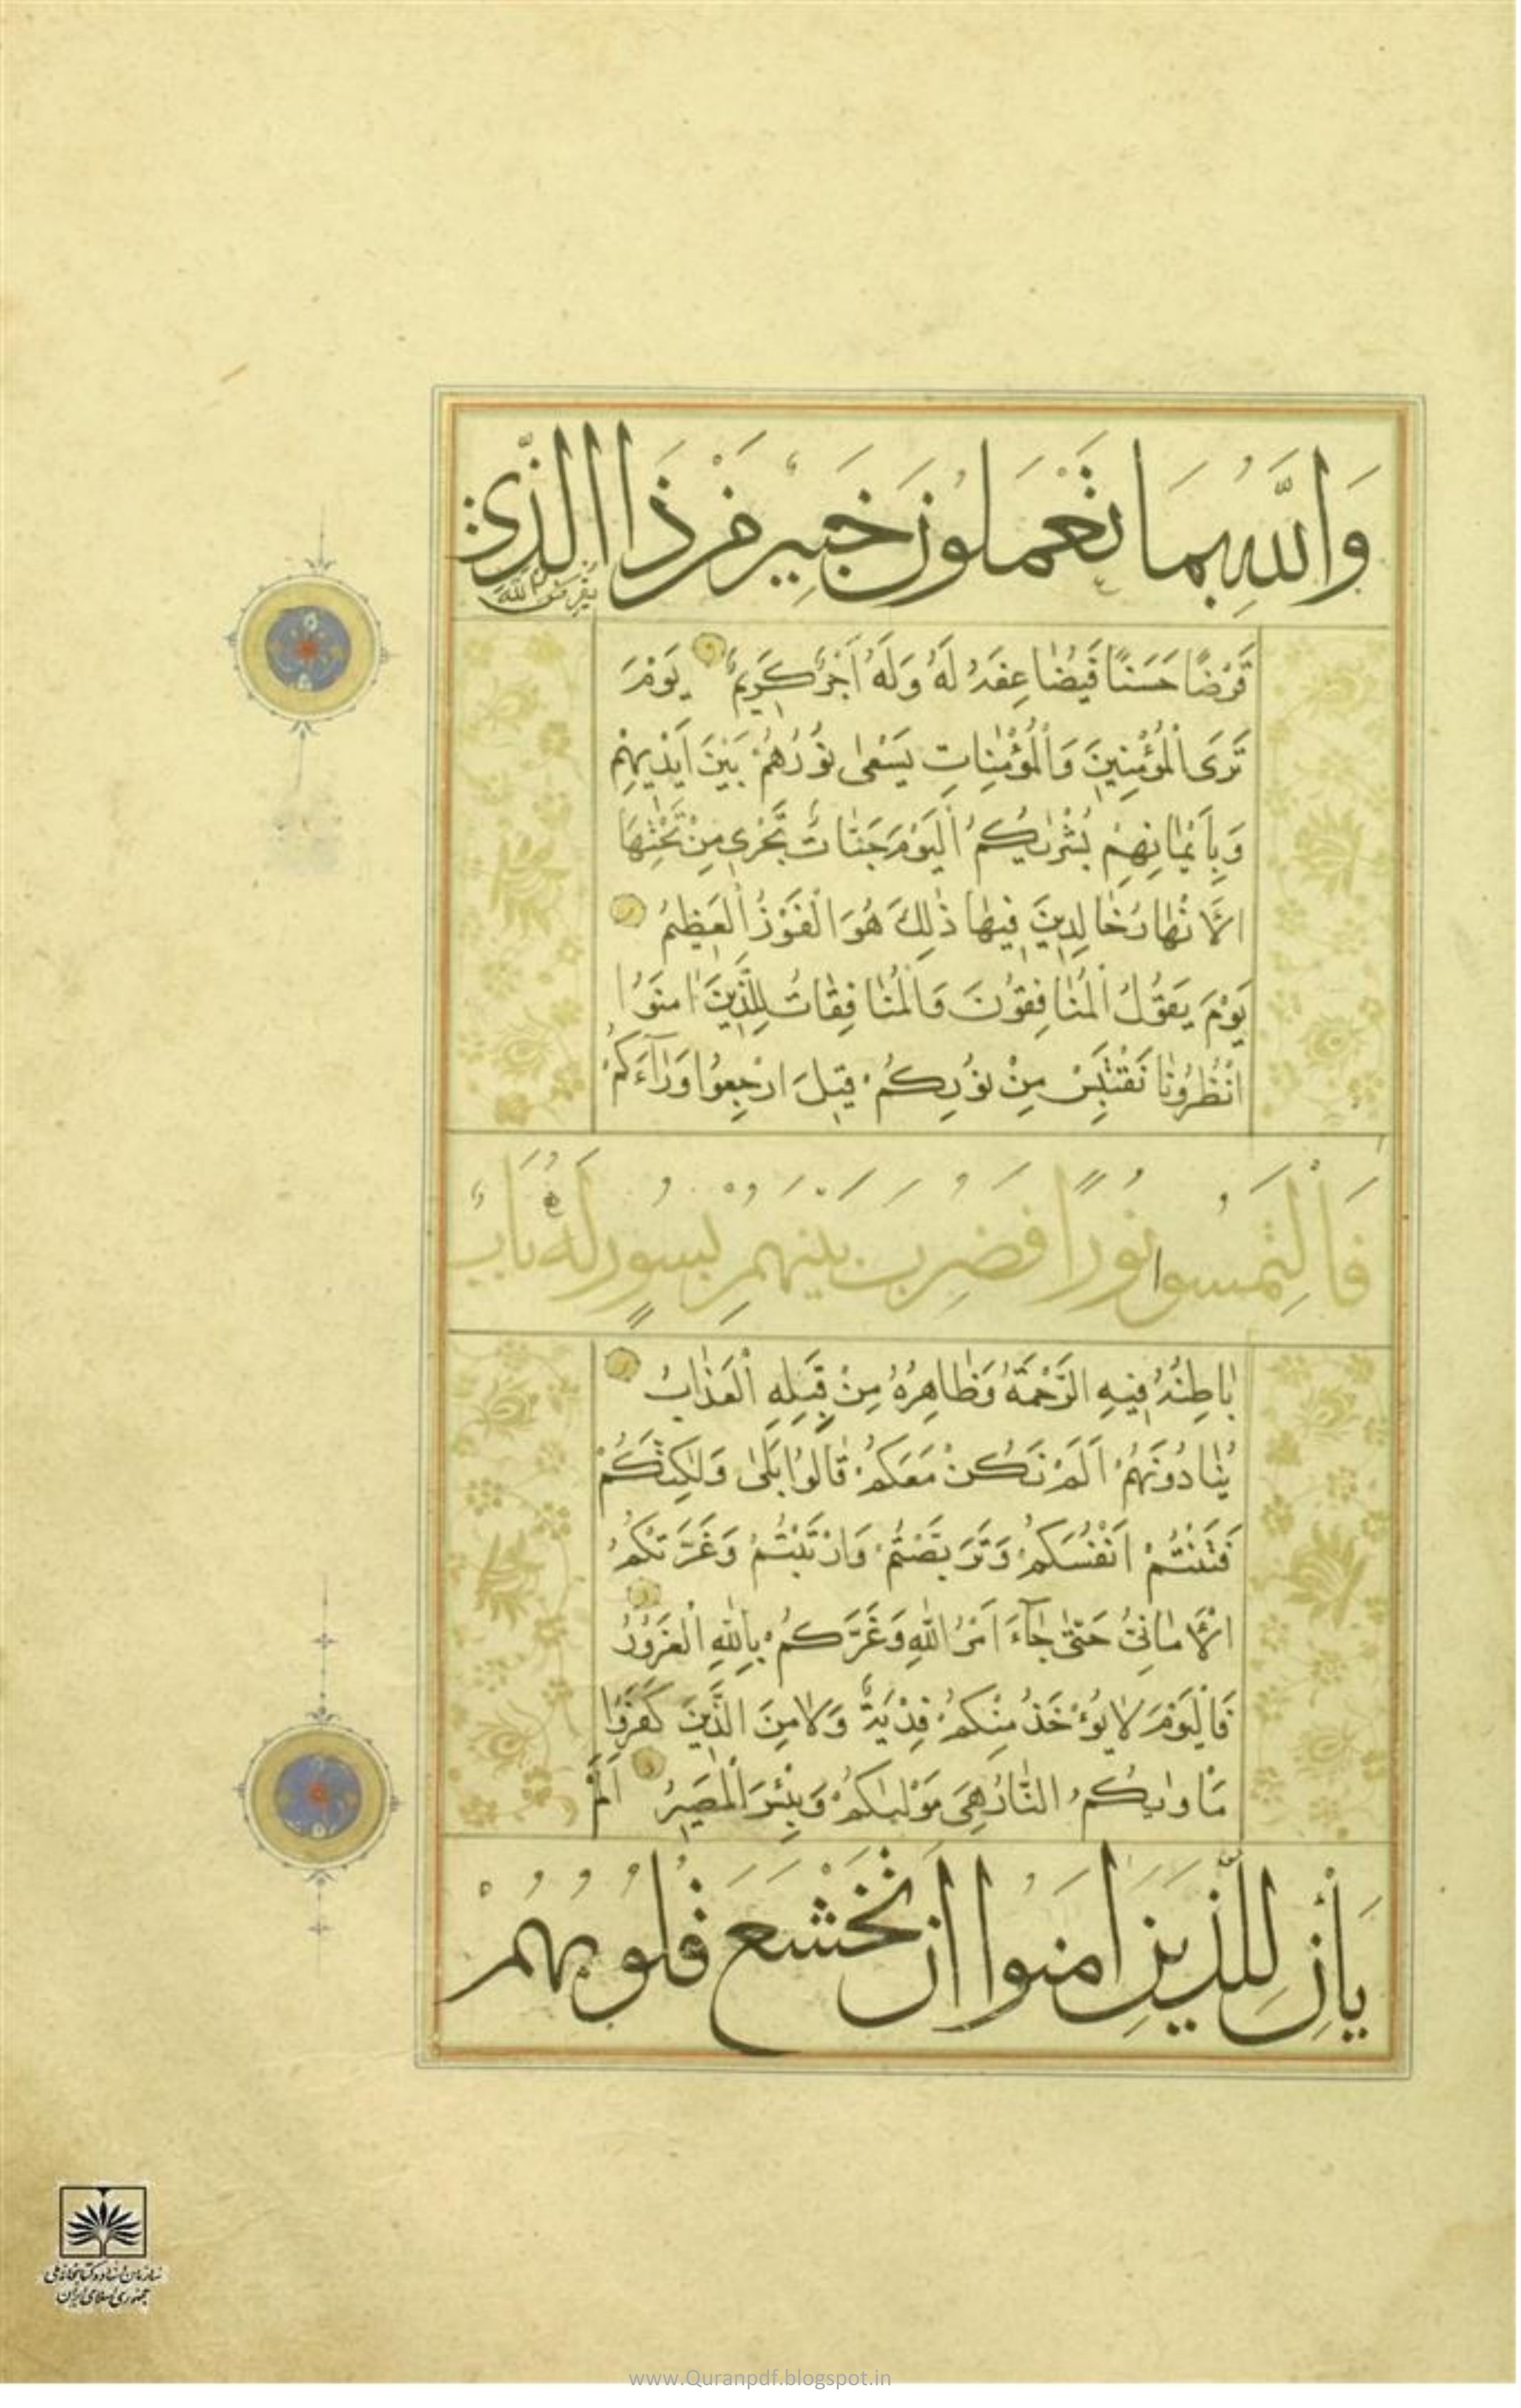 وَاللَّهُ بِمَا تَعْمَلُونَ خَبِيرٌ مَنْ ذَا الَّذِي
يُقْرِضُ اللهَ
قَرْضًا حَسَنًا فَيُضَاعِفَهُ لَهُ وَلَهُ أَجْرٌ كَرِيمٌ يَوْمَ
تَرَى الْمُؤْمِنِينَ وَالْمُؤْمِنَاتِ يَسْعَى نُورُهُمْ بَيْنَ أَيْدِيهِمْ
وَبِأَيْمَانِهِمْ بُشْرٰيكُمُ الْيَوْمَ جَنَّاتٌ تَجْرِي مِنْ تَحْتِهَا
الْأَنْهَارُ خَالِدِينَ فِيهَا ذٰلِكَ هُوَ الْفَوْزُ الْعَظِيمُ
يَوْمَ يَقُولُ الْمُنَافِقُونَ وَالْمُنَافِقَاتُ لِلَّذِينَ اٰمَنُوا
انْظُرُونَا نَقْتَبِسْ مِنْ نُورِكُمْ قِيلَ ارْجِعُوا وَرَآءَكُمْ
فَالْتَمِسُوا نُورًا فَضُرِبَ بَيْنَهُمْ بِسُورٍ لَهُ بَابٌ
بَاطِنُهُ فِيهِ الرَّحْمَةُ وَظَاهِرُهُ مِنْ قِبَلِهِ الْعَذَابُ
يُنَادُونَهُمْ أَلَمْ نَكُنْ مَعَكُمْ قَالُوا بَلَىٰ وَلٰكِنَّكُمْ
فَتَنْتُمْ أَنْفُسَكُمْ وَتَرَبَّصْتُمْ وَارْتَبْتُمْ وَغَرَّتْكُمُ
الْأَمَانِيُّ حَتَّىٰ جَآءَ أَمْرُ اللهِ وَغَرَّكُمْ بِاللهِ الْغَرُورُ
فَالْيَوْمَ لَا يُؤْخَذُ مِنْكُمْ فِدْيَةٌ وَلَا مِنَ الَّذِينَ كَفَرُوا
مَأْوٰيكُمُ النَّارُ هِيَ مَوْلٰيكُمْ وَبِئْسَ الْمَصِيرُ أَلَمْ
يَأْنِ لِلَّذِينَ اٰمَنُوا أَنْ تَخْشَعَ قُلُوبُهُمْ
سازمان اسناد و کتابخانه ملی
جمهوری اسلامی ایران
www.Quranpdf.blogspot.in